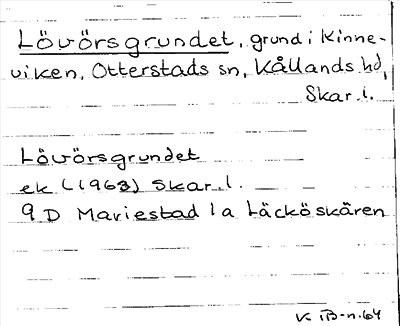 Lövörsgrundet, grund i Kinne-
viken, Otterstads sn, Kållands hd,
Skar. l.
Lövörsgrundet
ek (1963) Skar. l.
9 D Mariestad 1a Läcköskären